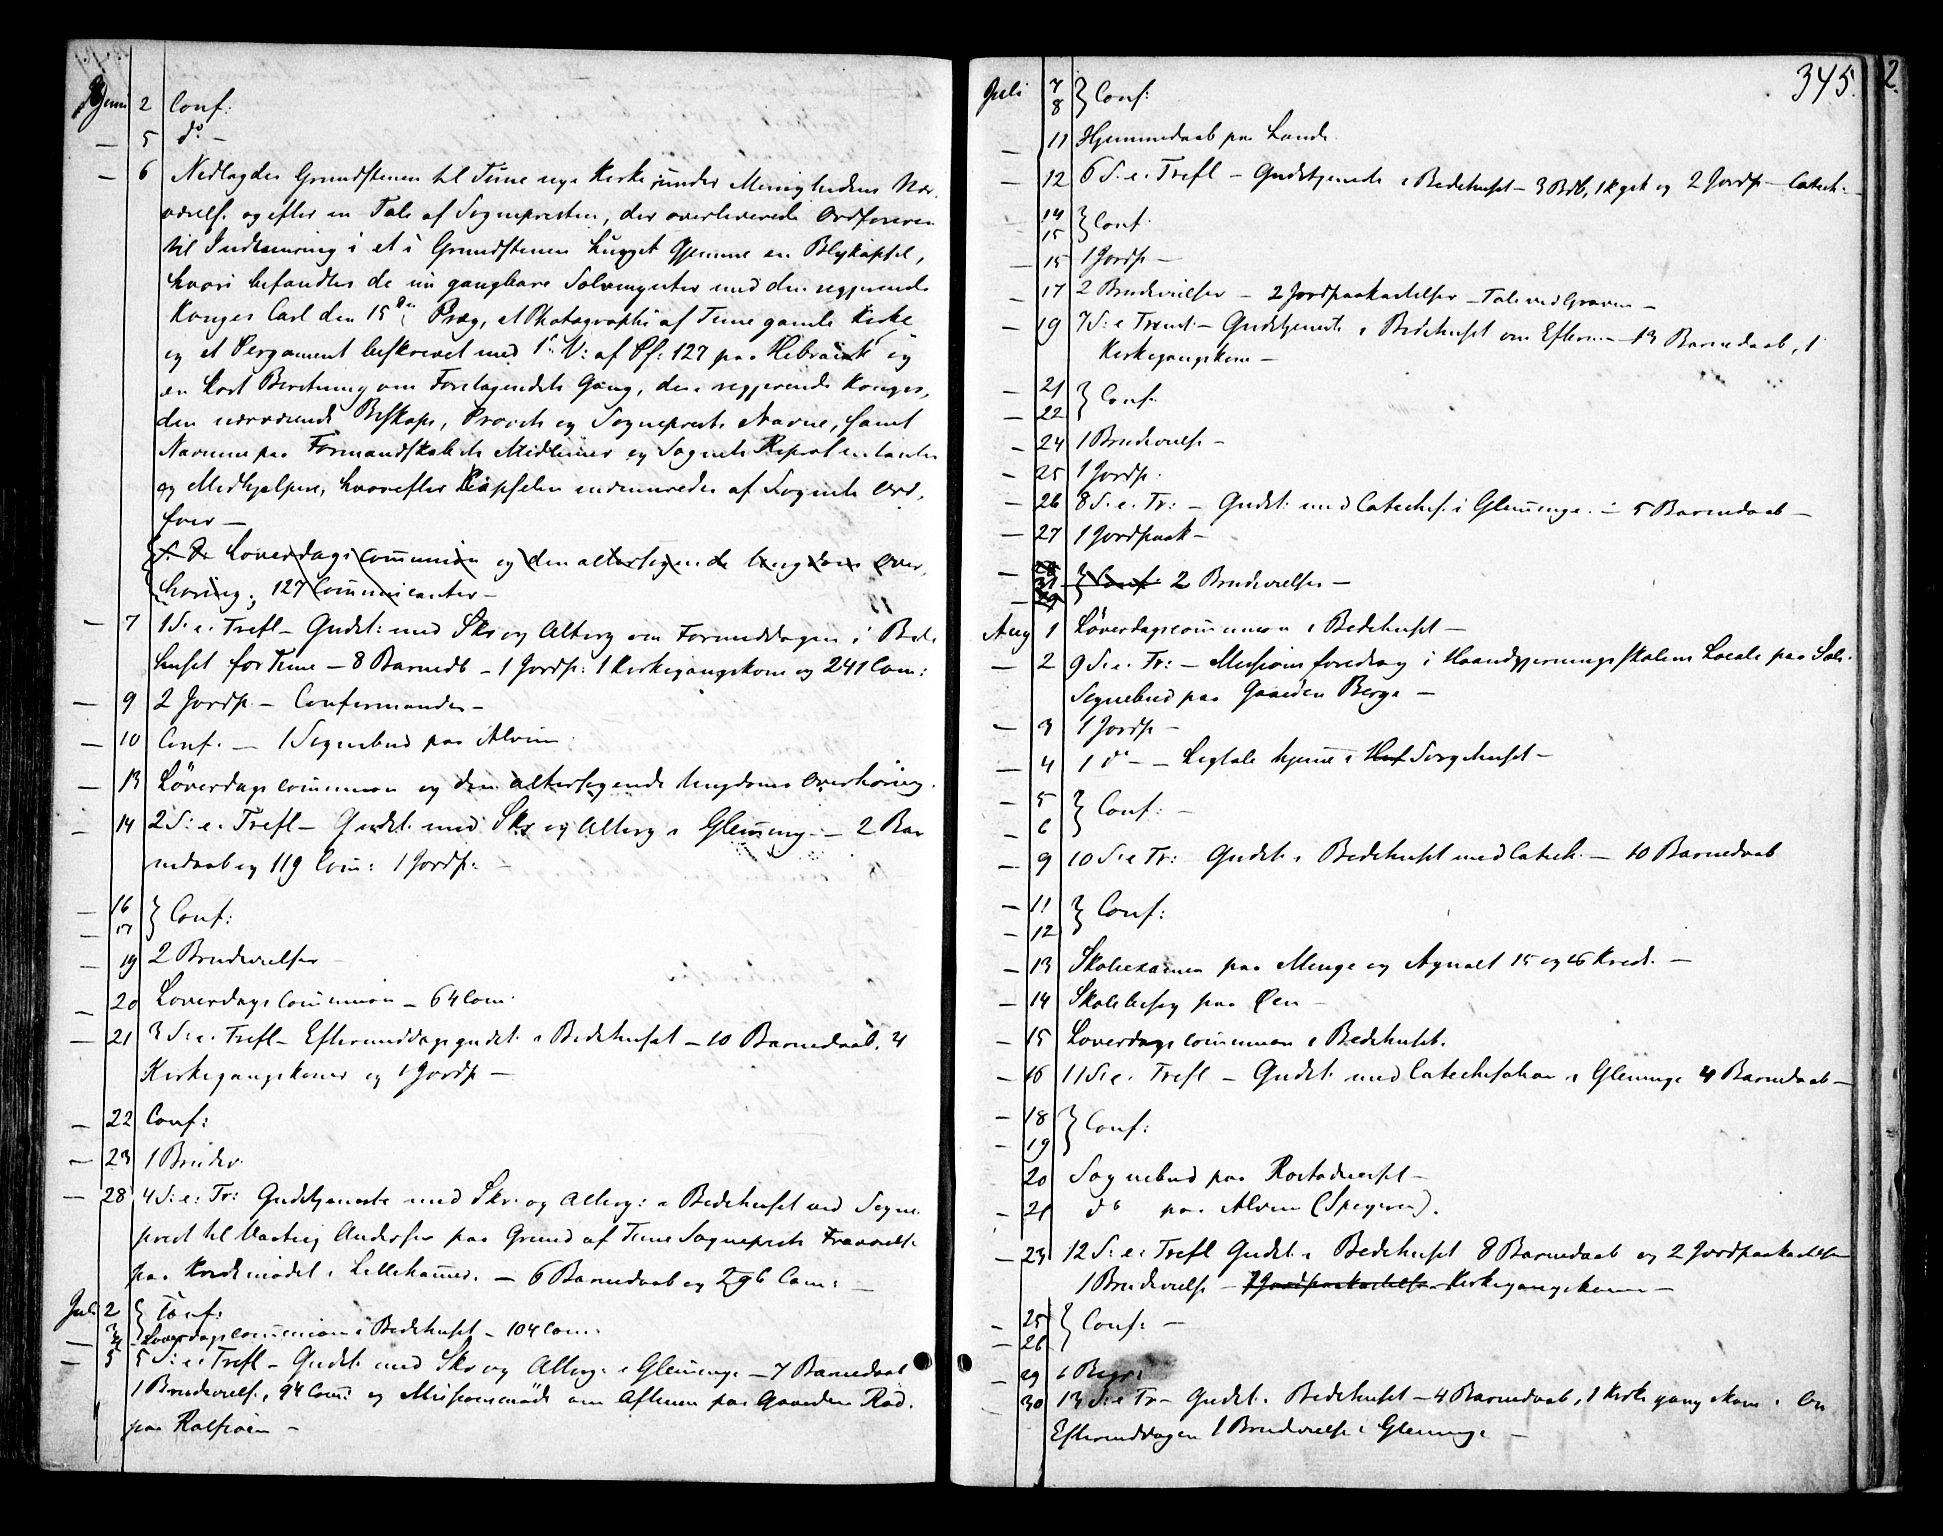 Juni 2 Conf:
— 5 do —
— 6 Nedlagdes Grundstenen til Tune nye Kirke under Menighedens Nær-
værelse og efter en Tale af Sognepresten, der overleverede Ordføreren
til Indmuring i et i Grundstenen hugget Gjemme en Blykapsel,
hvori befandtes de nu gangbare Sølvmynter med den regjerende
Konges Carl den 15de Præg, et Photographi af Tune gamle Kirke
og et Pergament beskrevet med 1ste V: af Ps: 127 paa Hebraisk og
en kort Beretning om Foretagendets Gang, den regjerende Konges,
den nærværende Biskops, Provsts og Sogneprests Navne, samt
Navnene paa Formandskabets Medlemer og Sognets Repræsentanter
og Medhjelpere, hvorefter Kapselen indmuredes af Sognets Ord-
fører —
Løverdagscommunion og den altersøgende Ungdoms Over-
høring; 127 Communicanter —
— 7 1 S. e. Trefl — Gudst: med Skr og Alterg om Formiddagen i Bede-
huset for Tune — 8 Barnedb — 1 Jordp: 1 Kirkegangskone og 241 Com:
— 9 2 Jordp. — Confirmander —
— 10 Conf. — 1 Sognebud paa Alvim
— 13 Löverdagscommunion og den altersøgende Ungdoms Overhöring.
— 14 2 S: e. Trefl — Gudst. med Skr og Alterg i Glemmg. — 2 Bar
nedaab og 119 Com: 1 Jordp: —
— 16
— 17 } Conf:
— 19 2 Brudevielser —
— 20 Løverdagscommunion — 64 Com.
— 21 3 S: e. Trefl — Eftermiddagsgudst. i Bedehuset — 10 Barnedaab, 4
Kirkegangskoner og 1 Jordp —
— 22 Conf:
— 23 1 Brudev.
— 28 4 S: e: Tr: Gudstjeneste med Skr. og Alterg: i Bedehuset ved Sogne-
prest til Varteig Andersen paa Grund af Tune Sogneprests Fraværelse
paa Kredsmødet i Lillehamer. — 6 Barnedaab og 296 Com: —
Juli 2
3 } Conf:
— 4 Løverdagscommunion i Bedehuset — 104 Com:
— 5 5 S: e: Trefl — Gudst: med Skr og Alterg. i Glemminge — 7 Barnedaab
1 Brudevielse, 94 Com: og Missionsmöde om Aftenen paa Gaarden Rød
paa Rolfsøen —
345.
2.
Juli 7
8 } Conf:
— 11 Hjemmedaab paa Lande
— 12 6 S. e. Trefl — Gudstjeneste i Bedehuset — 3 Bdb, 1 Kgsk og 2 Jordp — Catech. —
14
15 } Conf.
— 15 1 Jordp —
— 17 2 Brudevielser — 2 Jordpaakastelser — Tale ved Graven —
— 19 7 S: e Treent — Gudstjeneste i Bedehuset om Efterm — 13 Barnedaab, 1
Kirkegangskone —
— 21
— 22 } Conf.
— 24 1 Brudevielse —
— 25 1 Jordp.
— 26 8 S. e. Tr: — Gudst: med Catechis. i Glemminge. — 5 Barnedaab —
— 27 1 Jordpaak —
— 31 } Conf. 2 Brudevielser —
Aug 1 Løverdagscommunion i Bedehuset —
— 2 9 S. e. Tr: — Missionsforedrag i Haandgjerningsskolens Locale paa Sole.
Sognebud paa Gaarden Berge —
— 3 1 Jordp —
— 4 1 do — Ligtale hjemme i Huf Sorgehuset —
— 5
— 6 } Conf: —
— 9 10 S: e Tr: Gudst. i Bedehuset med Catech. — 10 Barnedaab
— 11
— 12 } Conf:
— 13 Skoleexamen paa Minge og Agnalt 15 og 16 Kreds. —
— 14 Skolebesøg paa Øen —
— 15 Løverdagscommunion i Bedehuset.
— 16 11 S: e. Trefl — Gudst. med Catechisation i Glemminge 4 Barnedaab —
— 18
— 19 } Conf:
20 Sognebud paa Rostadneset —
— 21 do paa Alvim (Spigeren).
— 23 12 S: e: Trefl Gudst. i Bedehuset 8 Barnedaab og 2 Jordpaakastelser
1 Brudevielse — 1 Jordpaakastelse Kirkegangskone —
— 25
— 26 } Conf: —
— 29 6 Begr:
— 30 13 S: e Tr — Gudst. i Bedehuset — 4 Barnedaab, 1 Kirkegangskone. Om
Eftermiddagen 1 Brudevielse i Glemminge —